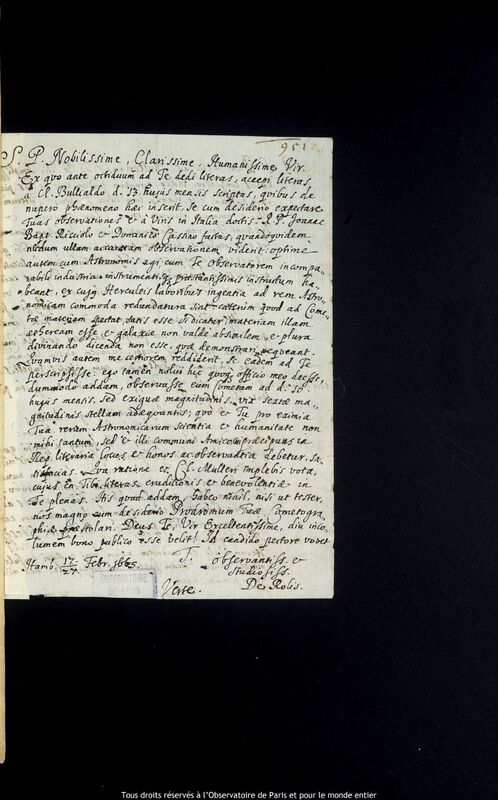 951.
S. P. Nobilissime, Clarissime, Humanissime Vir.
Ex quo ante octiduum ad Te dedi literas, accepi literas
à Cl. Bullialdo d. 13 hujus mensis scriptas, quibus de
nupero phænomeno hæc inserit, se cum desiderio expectare
Tuas observationes et à Viris in Italia doctis: R. P. Joanne
Bapt. Ricciolo et Dominico Cassino factas, quandoquidem
nondum ullam accuratam observationem viderit: optime
autem cum Astronomis agi cum Te Observatorem incompa-
rabili industria instrumentisq; præstantissimis instructum ha-
beant, ex cujq Herculeis laboribus ingentia ad rem Astro-
nomicam commoda redundatura sint. cæterùm quod ad Come-
tæ materiam spectat satis esse si dicatur materiam illam
ætheream esse, et galaxiæ non valde absimilem, et plura
divinando dicenda non esse, quæ demonstrari nequeant.
Quamvis autem me certiorem reddiderit, se eadem ad Te
perscripsisse: ego tamen nolui hic quoq officio meo deesse,
dummodo addam, observasse eum Cometam ad d. 10
hujus mensis, sed exiguæ magnitudinis, vix sextæ ma-
gnitudinis stellam adæquantis; quo et Tu pro eximia
Tua rerum Astronomicarum scientia et humanitate non
mihi tantum, sed et illi communi Amico cui præcipuus in
Rep. literaria locus et honos ac observantia debetur, sa-
tisfacias. Qua ratione et Cl. Mulleri implebis vota,
cujus en Tibi literas eruditionis et benevolentiæ in
Te plenas. His quod addam, habeo nihil, nisi ut tester,
nos magno cum desiderio Prodromum Tuæ Cometogra-
phiæ præstolari. Deus Te, Vir Excellentissime, diu inco-
lumem bono publico esse velit! Id candido pectore vovet
Hamb. 17/27 Febr. 1665.
T. observantiss. et
studiosiss.
De Rolis.
OBSERVATOIRE
Verte.
Tous droits réservés à l'Observatoire de Paris et pour le monde entier